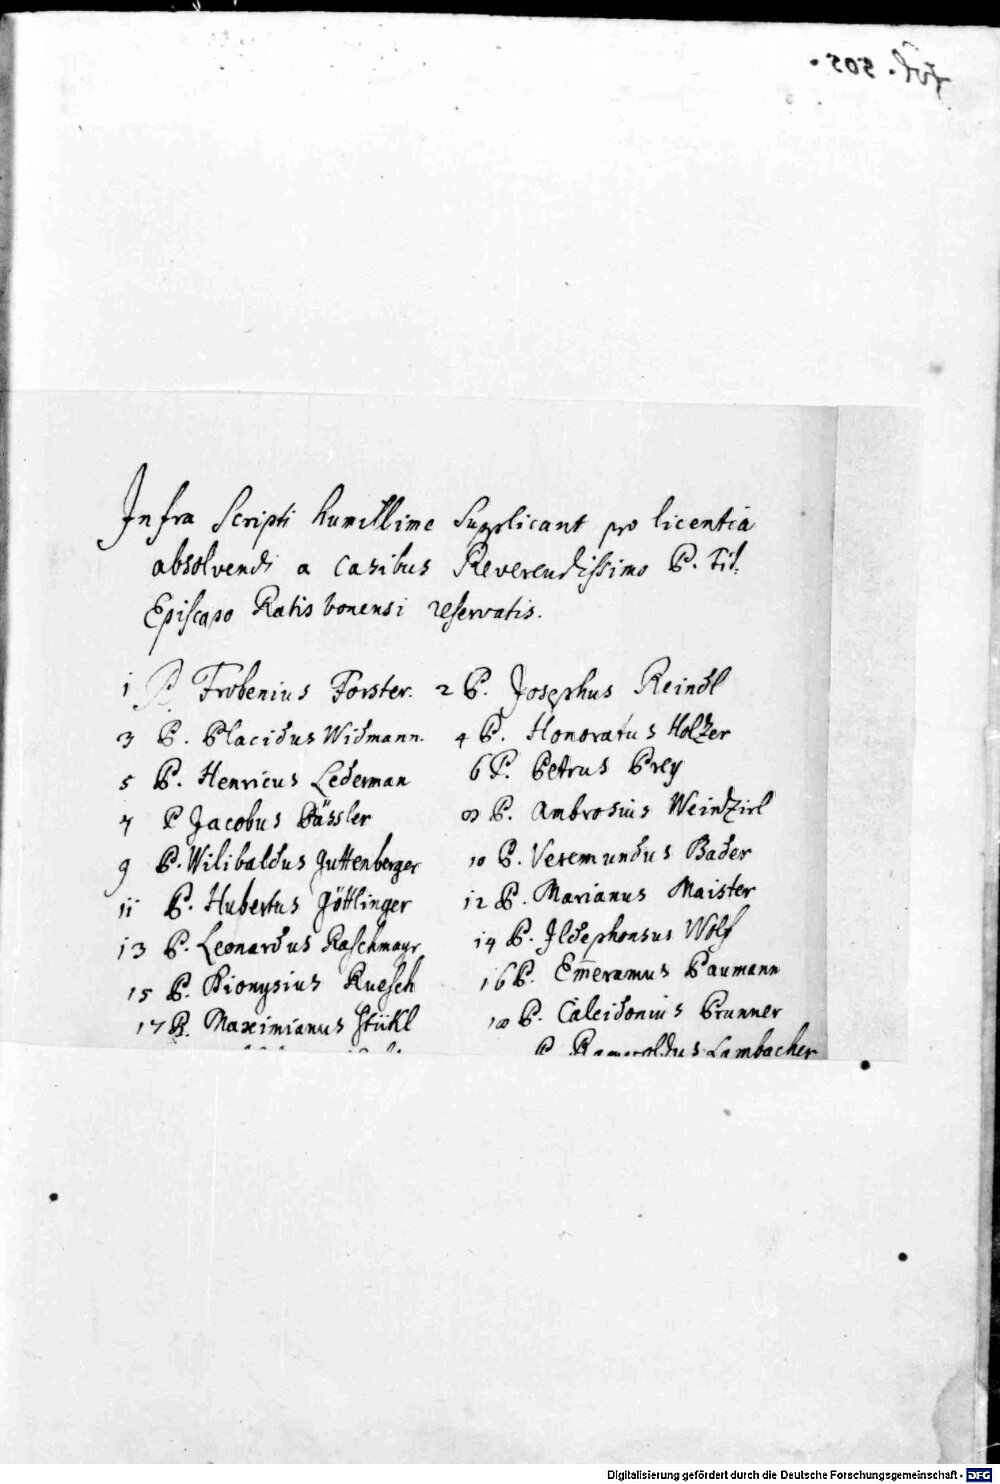 Fol. 505.
Infra Scripti humillime Supplicant pro licentia
absolvendi a Casibus Reverendissimo P. Tit:
Episcopo Ratisbonensi reservatis.
1 P Frobenius Forster. 2 P. Josephus Reindl
3 P. Placidus Widmann. 4 P. Honoratus Holzer
5 P. Henricus Lederman 6 P. Petrus Prey
7 P Jacobus Pässler 8 P. Ambrosius Weindzirl
9 P. Wilibaldus Guttenberger 10 P. Veremundus Bader
11 P. Hubertus Göttlinger 12 P. Marianus Maister
13 P. Leonardus Raschmayr 14 P. Ildephonsus Wolf
15 P. Dionysius Ruesch 16 P. Em̅eramus Baumann
17 P. Maximianus Stükl 18 P. Calcidonius Prunner
P. Lambacher
Digitalisierung gefördert durch die Deutsche Forschungsgemeinschaft - DFG